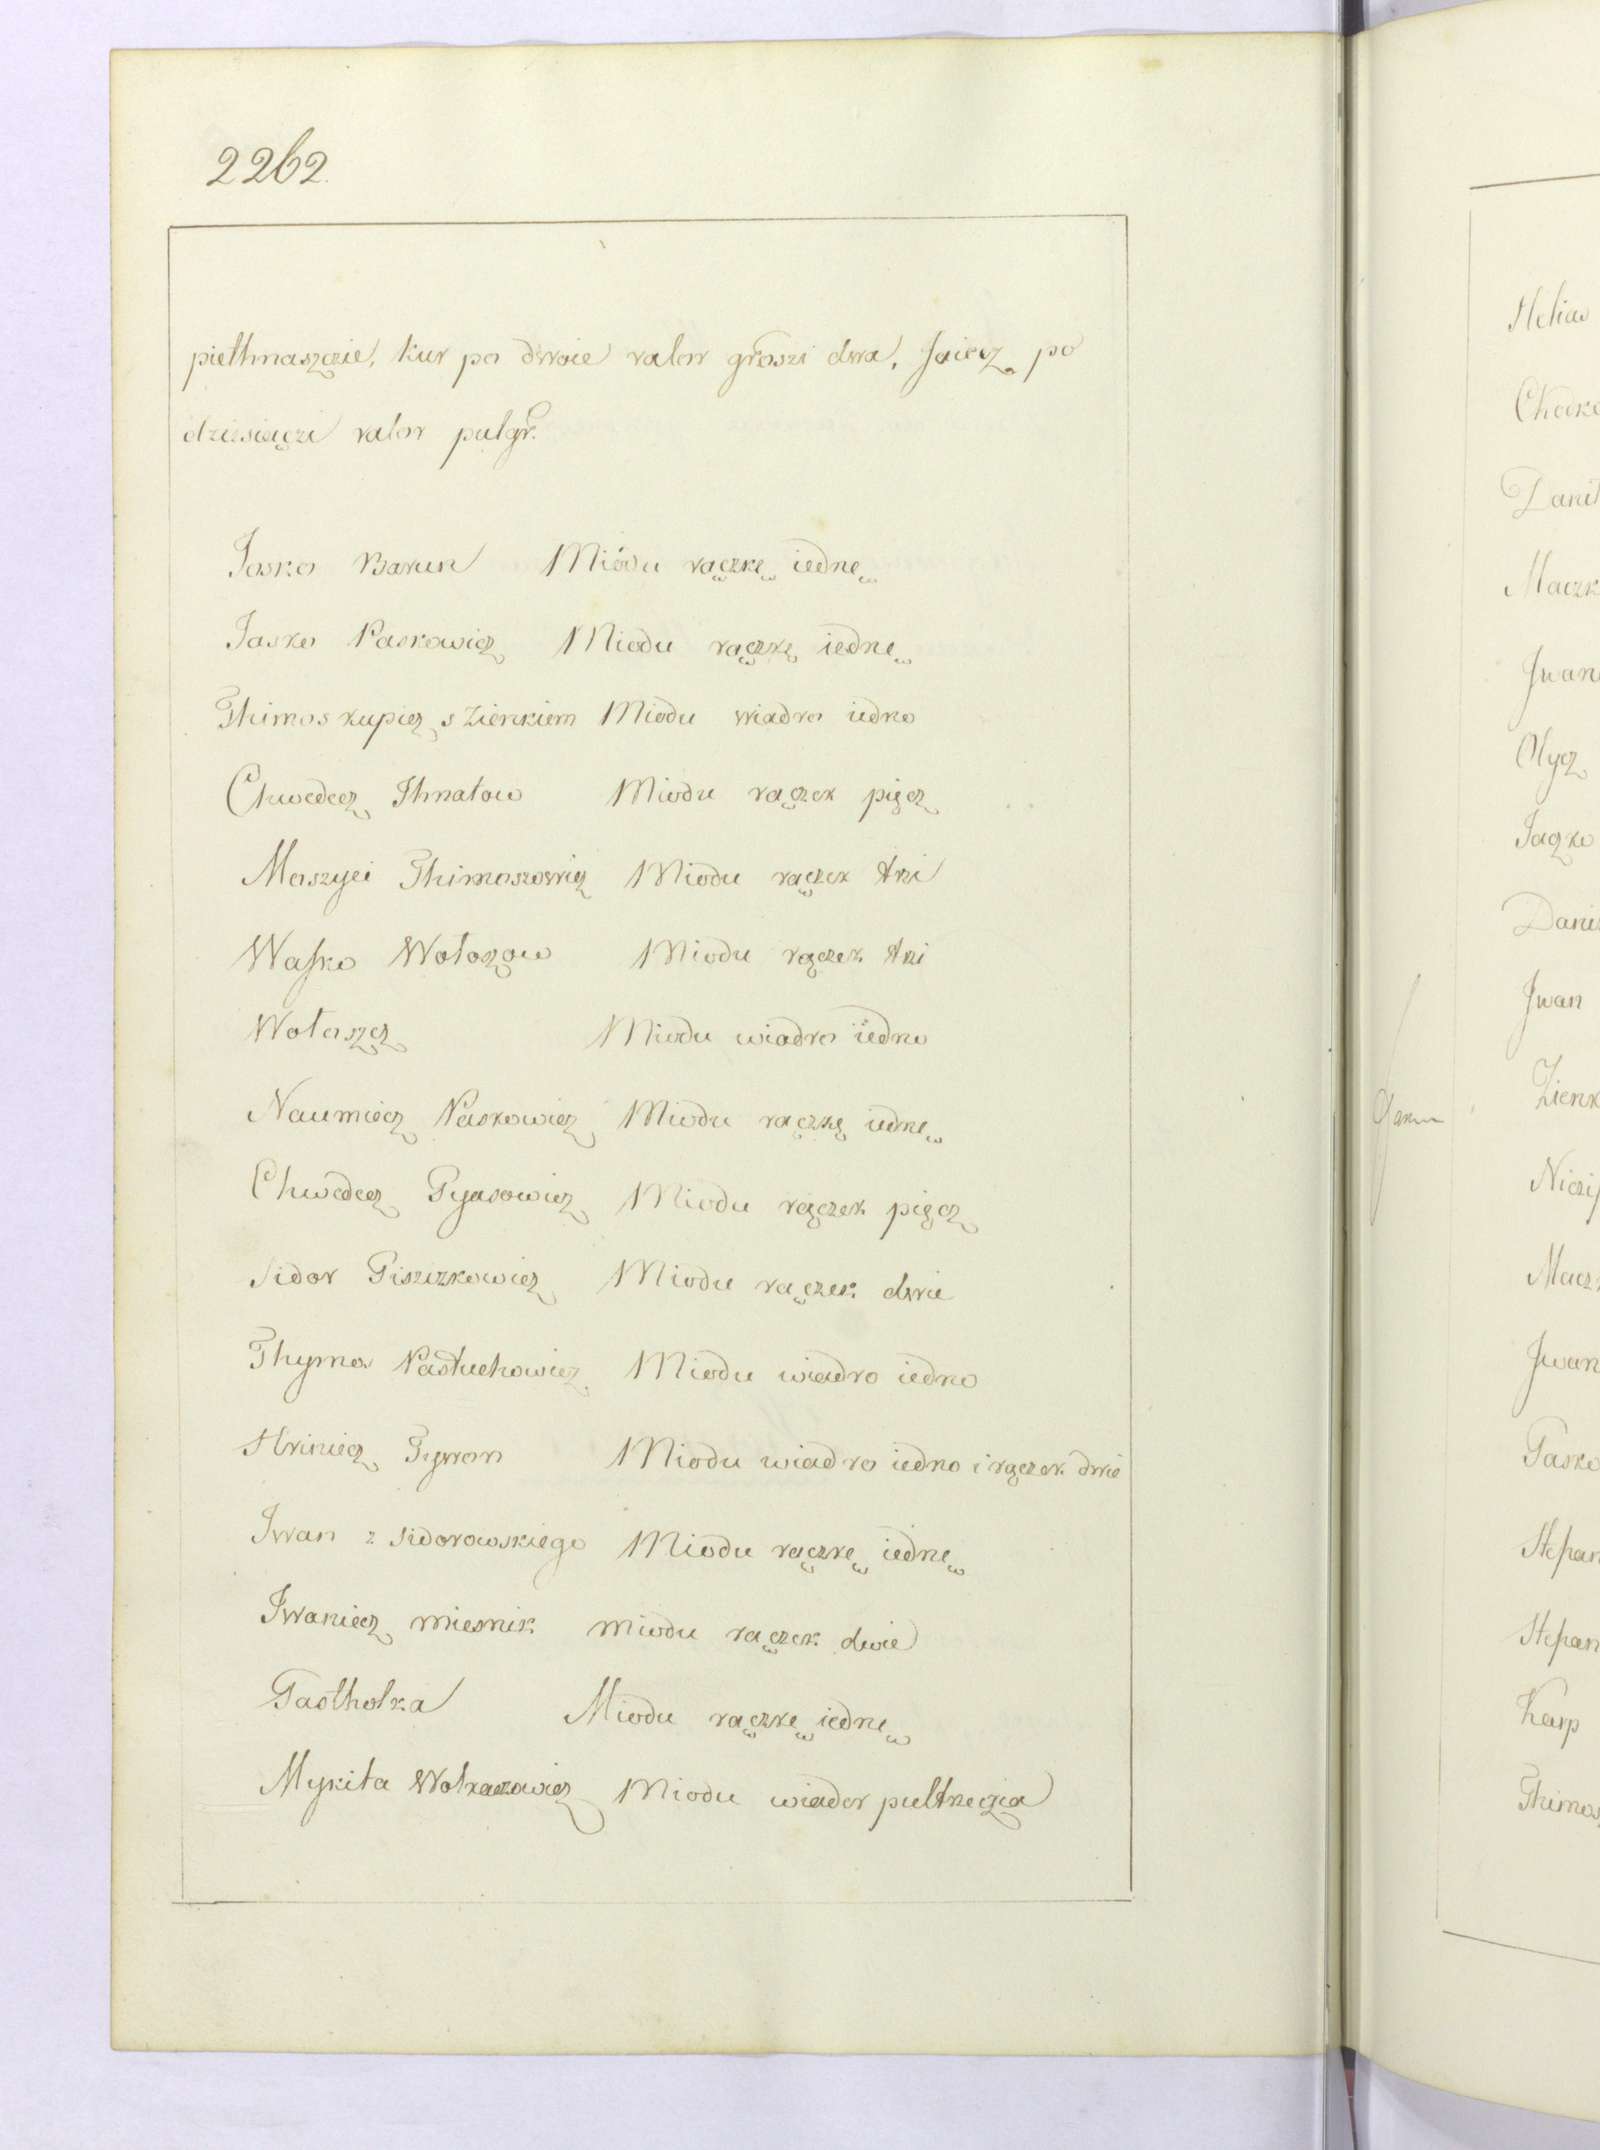 2262
piethnaszczie, kur po dwoie valor groszi dwa, Jaiecz po
dziesiączi valor pułgr.
Jasko Barun Miodu rączkę iednę
Jasko Paskowicz Miodu rączkę iednę
Thimos kupiecz s Zienkiem Miodu wiadro iedno
Chwedecz Ihnatow Miodu rączek pięcz
Moszyei Thimoszowicz Miodu rączek trzi
Wasko Wołoszow Miodu rączek trzi
Wołoszcz Miodu wiadro iedno
Naumiecz Paskowicz Miodu rączkę iednę
Chwedecz Pyasowicz Miodu rączek pięcz
Sidor Piszczkowicz Miodu rączek dwie
Thymos Pastuchowicz Miodu wiadro iedno
Hriniecz Tywon Miodu wiadro iedno i rączek dwie
Iwan z Sidorowskiego Miodu rączkę iednę
Iwaniecz miesnik miodu rączek dwie
Pastholka Miodu rączkę iednę
Mykita Wolkaczowicz Miodu wiader pułtrzeczia
Helias
Maczk
Iwan
Olycz
Jaczko
Dani
Iwan
Zienk
Maczk
Iwan
Pasko
Stepan
Stepan
Karp
Thimos